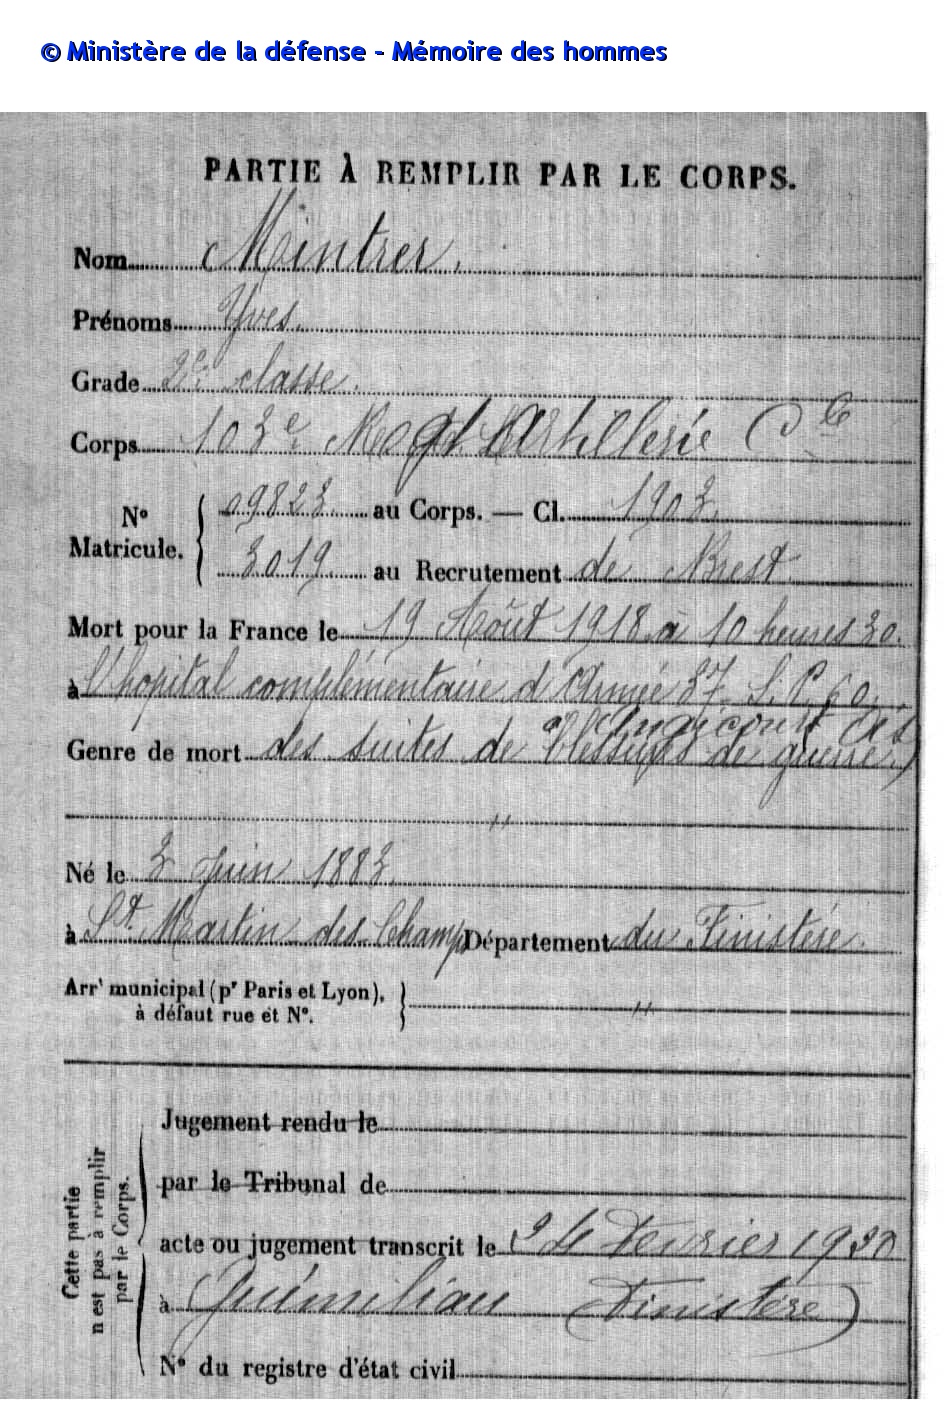 © Ministère de la défense - Mémoire des hommes
PARTIE À REMPLIR PAR LE CORPS.
Nom Mintrer.
Prénoms Yves.
Grade 2e classe.
Corps 103e Regt d'Artillerie Cle
N° Matricule. { 09823 au Corps. — Cl. 1903.
3019 au Recrutement de Brest
Mort pour la France le 19 Août 1918 à 10 heures 30.
à l'hopital complémentaire d'Armée 37. S.P. 60.
Genre de mort des suites de blessures de guerre.
"
Né le 3 Juin 1883.
à St Martin des Champs Département du Finistère.
Arrt municipal (pr Paris et Lyon), à défaut rue et N°. } "
Cette partie n'est pas à remplir par le Corps.
Jugement rendu le
par le Tribunal de
acte ou jugement transcrit le Fevrier 1920
à (Finistère)
N° du registre d'état civil